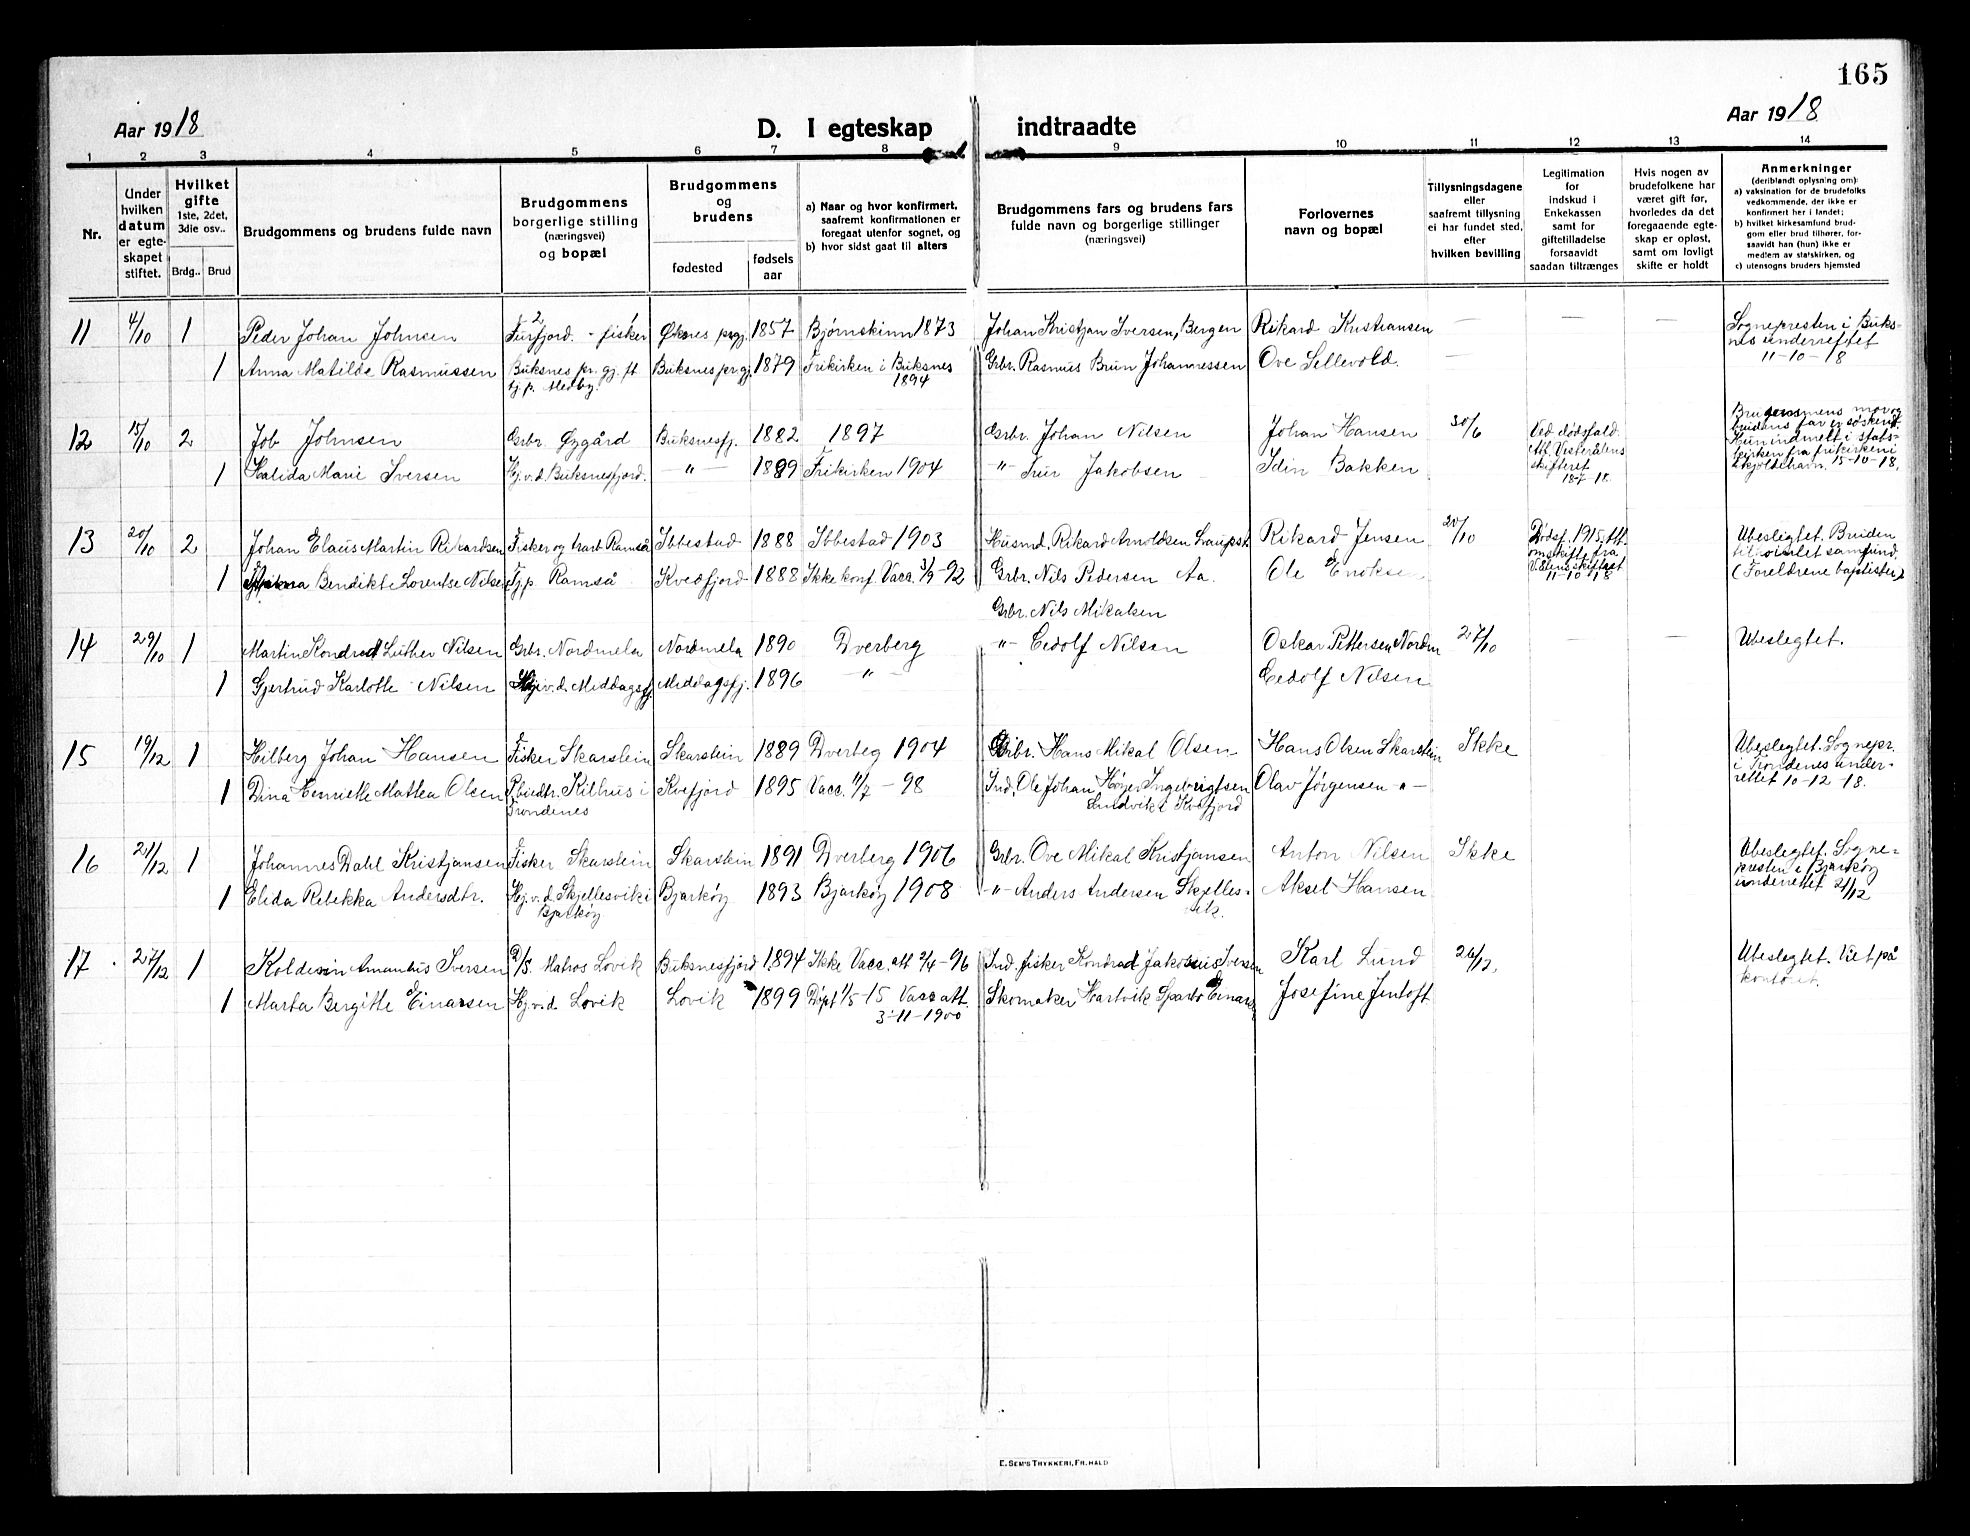 165
Aar 1918
D. I egteskap indtraadte
Aar 1918
1 2 3 4 5 6 7 8 9 10 11 12 13 14
Nr.
Under hvilken datum er egteskapet stiftet.
Hvilket gifte
1ste, 2det, 3die osv..
Brdg.. Brud
Brudgommens og brudens fulde navn
Brudgommens borgerlige stilling (næringsvei) og bopæl
Brudgommens og brudens
fødested
fødselsaar
a) Naar og hvor konfirmert, saafremt konfirmationen er foregaat utenfor sognet, og
b) hvor sidst gaat til alters
Brudgommens fars og brudens fars fulde navn og borgerlige stillinger (næringsvei)
Forlovernes navn og bopæl
Tillysningsdagene eller saafremt tillysning ei har fundet sted, efter hvilken bevilling
Legitimation for indskud i Enkekassen samt for giftetilladelse forsaavidt saadan tiltrænges
Hvis nogen av brudefolkene har været gift før, hvorledes da det foregaaende egteskap er opløst, samt om lovligt skifte er holdt
Anmerkninger
(deriblandt oplysning om:
a) vaksination for de brudefolks vedkommende, der ikke er konfirmert her i landet;
b) hvilket kirkesamfund brudgom eller brud tilhører, forsaavidt han (hun) ikke er medlem av statskirken, og
c) utensogns bruders hjemsted
11 4/10 1 Peder Johan Johnsen Furfjord. - fisker Øksnes prgj. 1857 Bjørnskinn 1873 Johan Kristjan Iversen, Bergen Rikard Kristiansen — — — Sognepresten i Buksnes underrettet 11-10-18
1 Anna Matilde Rasmussen Buksnes pr. gj. ft. tj.p. Medby. Buksnes prgj. 1879 Frikirken i Buksnes 1894 Grbr. Rasmus Brun Johannessen Ove Sellevold. —
12 15/10 2 Job Johnsen Grbr. Øygård Buksnesfj. 1882 1897 Grbr. Johan Nilsen Johan Hansen 30/6 Ved dødsfald. Att. Vesterålens skifteret 18-7-18. Brudgommens mor og brudens far er søskend. Hun indmelt i statskirken fra frikirken i Skjoldehavn. 15-10-18.
1 Halida Marie Iversen Hj.v.d. Buksnesfjord. -"- 1889 Frikirken 1904 "- Iver Jakobsen Idin Bakken
13 20/10 2 Johan Elaus Martin Rikardsen Fisker og Ramså Ibbestad 1888 Ibbestad 1903 Husmd. Rikard Arnoldsen Rikard Jensen 20/10 Dødsf. 1915, att. om skifte fra 11-10-18 Ubeslegtet. Bruden samfund. (Foreldrene baptister)
1 Bendikte Lorentse Nilsen Tj.p. Ramså Kvedfjord 1888 Ikke konf. Vacc. 3/9 -92 Grbr. Nils Pedersen Aa. Ole
Grbr. Nils Mikalsen
14 29/10 1 Martin Kondrad Luther Nilsen Grbr. Nordmela Nordmela 1890 Dverberg "- Eedolf Nilsen Oskar Pettersen Nordm 27/10 — — Ubeslegtet.
1 Gjertrud Karlotte Nilsen Hj.v.d. Middagsfj. Middagsfj. 1896 -"- Eedolf Nilsen
15 19/12 1 Hilberg Johan Hansen Fisker Skarstein Skarstein 1889 Dverbeg 1904 Grbr. Hans Mikal Olsen Hans Olsen Skarstein Ikke Ubeslegtet. Sognepr. i Trondenes underrettet 10-12-18.
1 Dina Henriette Mattea Olsen Kilhus i Trondenes Kvefjord 1895 Vacc. 11/7 - 98 Ind. Ole Johan Høyer Ingebrigtsen Sandvik i Kvefjord Olav Jørgensen -"-
16 21/12 1 Johannes Dahl Kristjansen Fisker Skarstein Skarstein 1891 Dverberg 1906 Grbr. Ove Mikal Kristjansen Anton Nilsen Ikke Ubeslegtet. Sognepresten i Bjarkøy underrettet 21/12
1 Elida Rebekka Andersdtr. Hj.v.d. Skjellesvik i Bjarkøy Bjarkøy 1893 Bjarkøy 1908 "- Anders Andersen Skjellesvik. Aksel Hansen
17 27/12 1 Koldevin Amandus Iversen D/S. Matros Lovik Buksnesfjord 1894 Ikke Vacc. att 2/4-96 Ind. fisker Kondrad Jakobsen Iversen Karl Lund 26/12. Ubeslegtet. Viet på kontoret.
1 Marta Bergitte Einarsen Hj.v.d. Lovik Lovik 1899 Døpt 1/5-15 Vacc att. 3-11-1900 Skomaker Hartvik Einarsen Josefine Jentoft
E. SEM'S TRYKKERI, FR. HALD